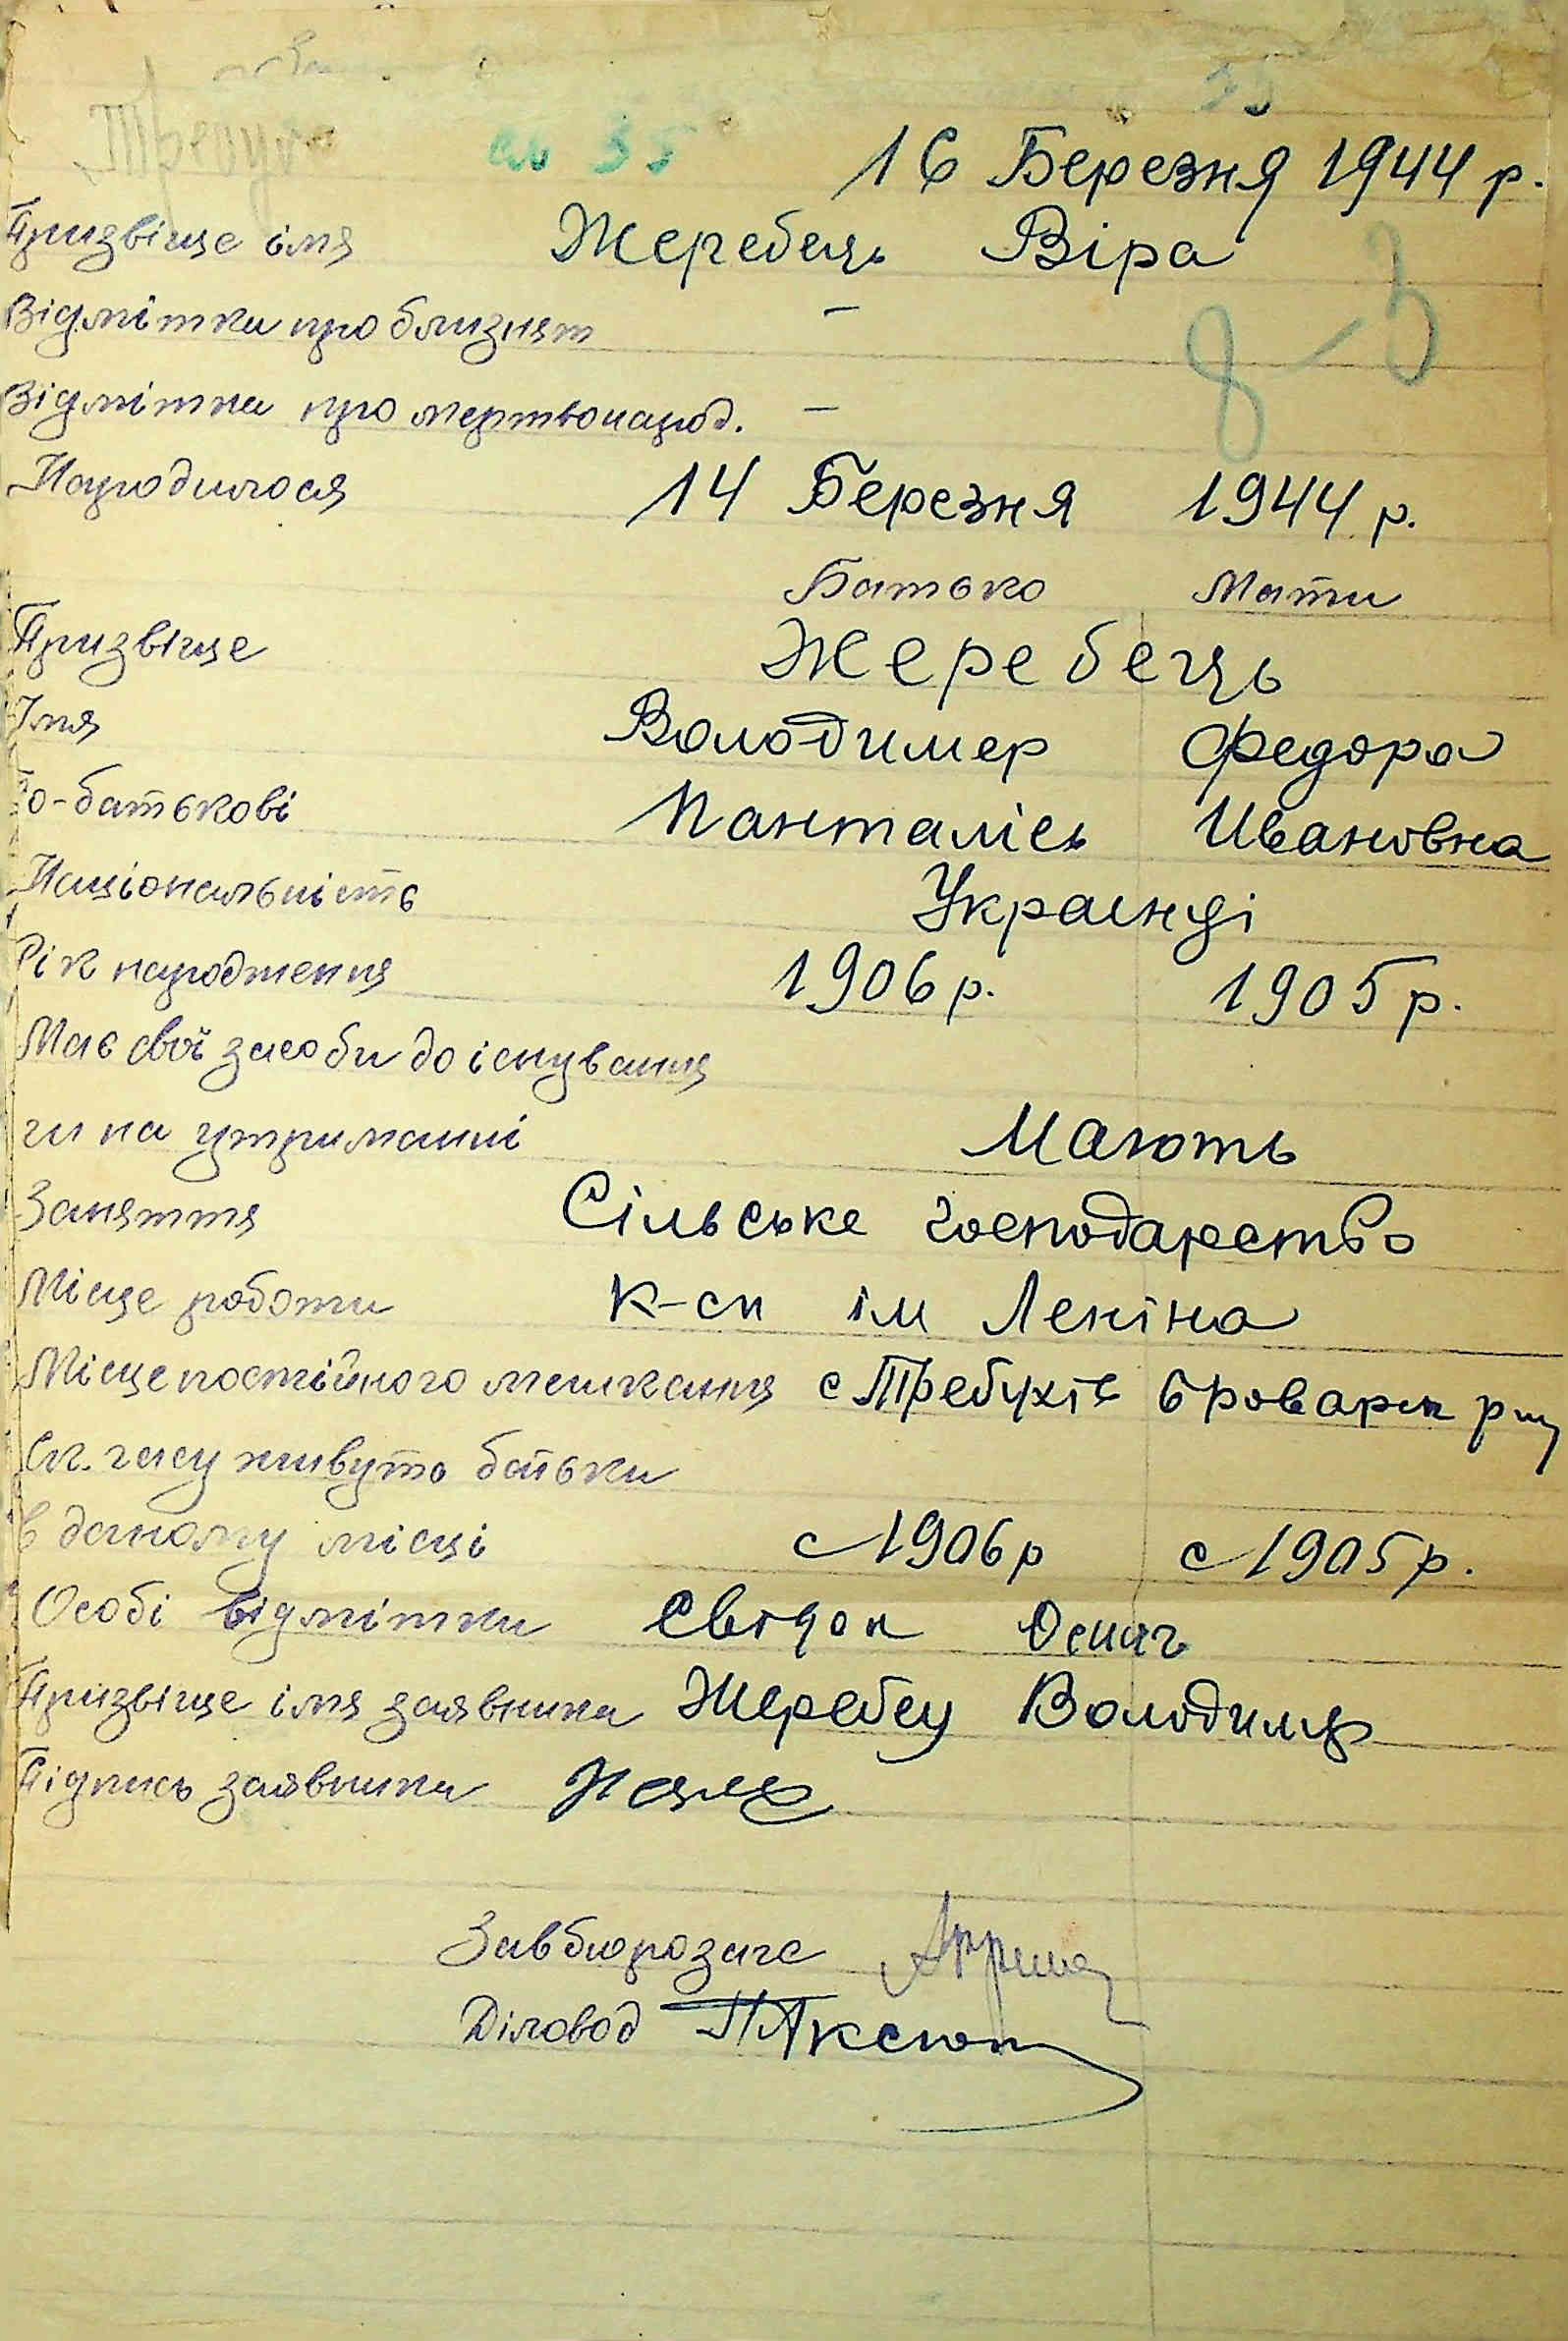 ал 35
16 Березня 1944 р.
Призвіще імя Жеребець Віра
Відмітка про близнят –
8-3
Відмітка про мертвонарод. –
Народилося 14 Березня 1944 р.
Батько Мати
Призвіще Жеребець
Імя Володимер Федора
По-батькові Пантались Ивановна
Національність Украинці
Рік народження 1906 р. 1905 р.
Має свої засоби до існування
чи на утриманні Мають
Заняття Сільське господарство
Місце роботи К-сп ім Леніна
Місце постійного мешкання с Требухів Броварск р-ну
Ск. часу живуть батьки
в даному місці с 1906 р с 1905 р.
Особі відмітки Свідок
Призвіще імя заявника Жеребец Володимер
Підпись заявника
Завбюрозагс
Діловод ПАксют